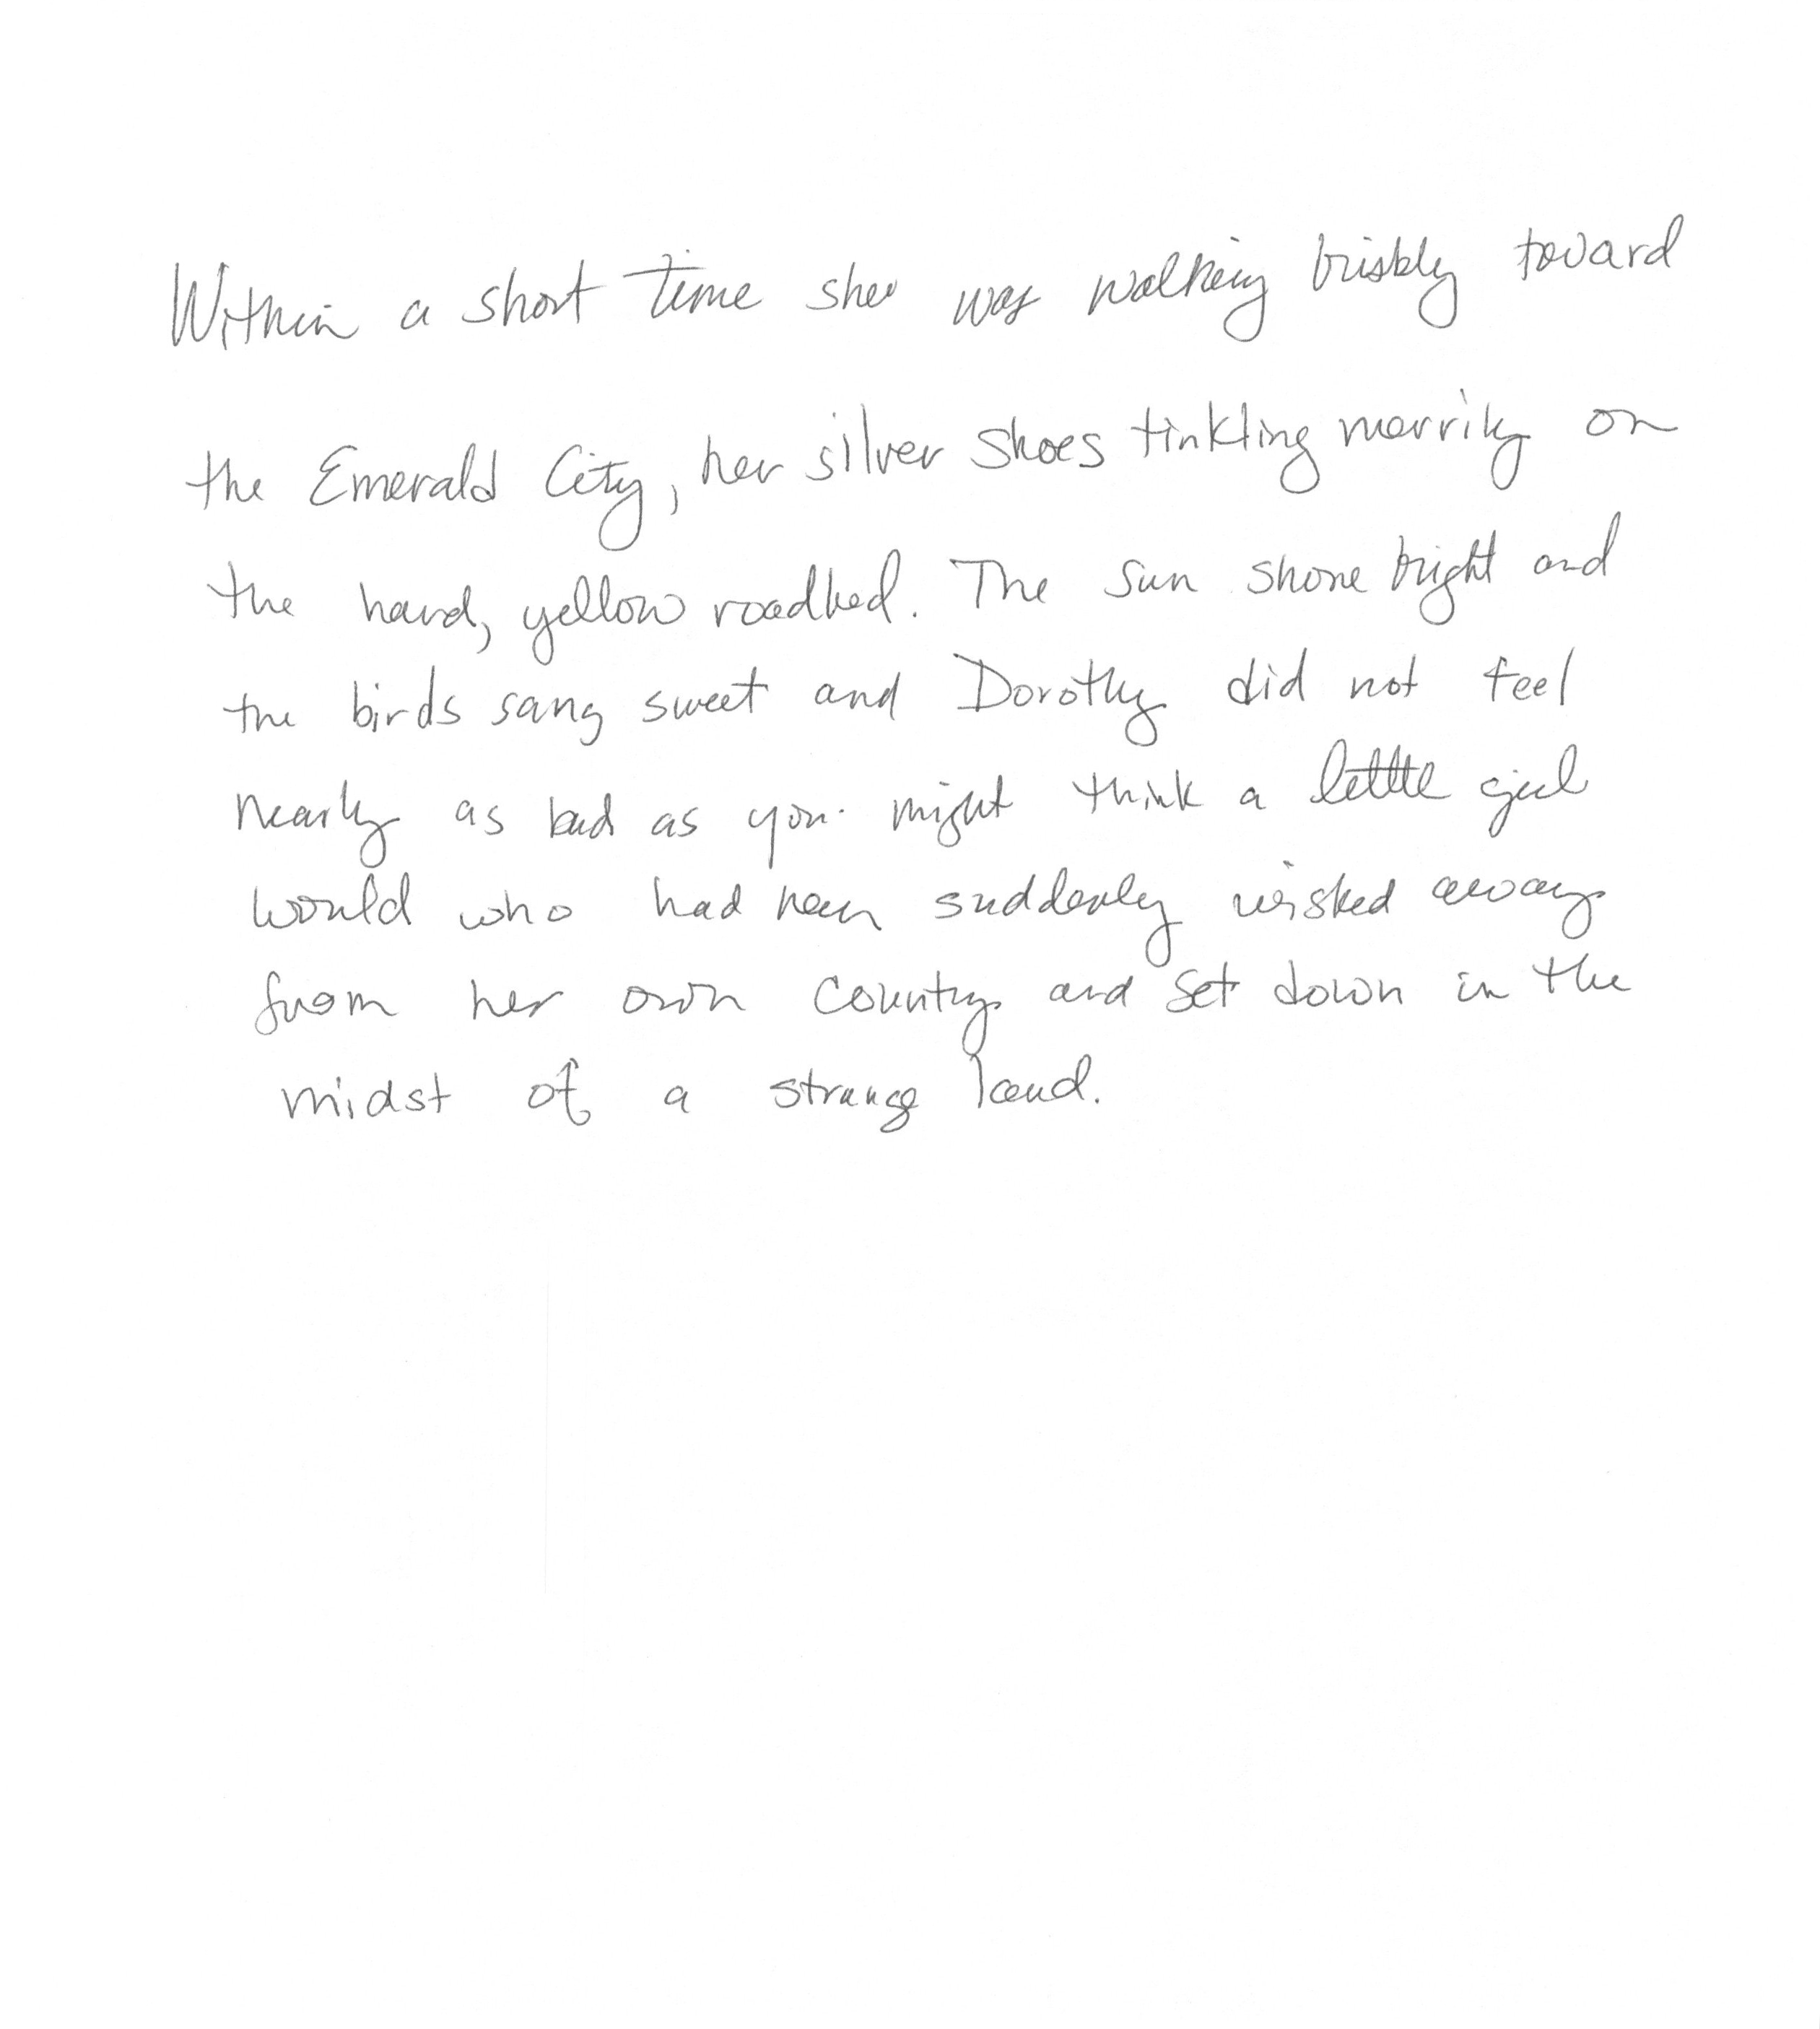 Within a short time she was walking briskly toward
the Emerald City, her silver shoes tinkling merrily on
the hard, yellow roadbed. The sun shone bright and
the birds sang sweet and Dorothy did not feel
nearly as bad as you might think a little girl
would who had been suddenly wisked away
from her own country and set down in the
midst of a strange land.